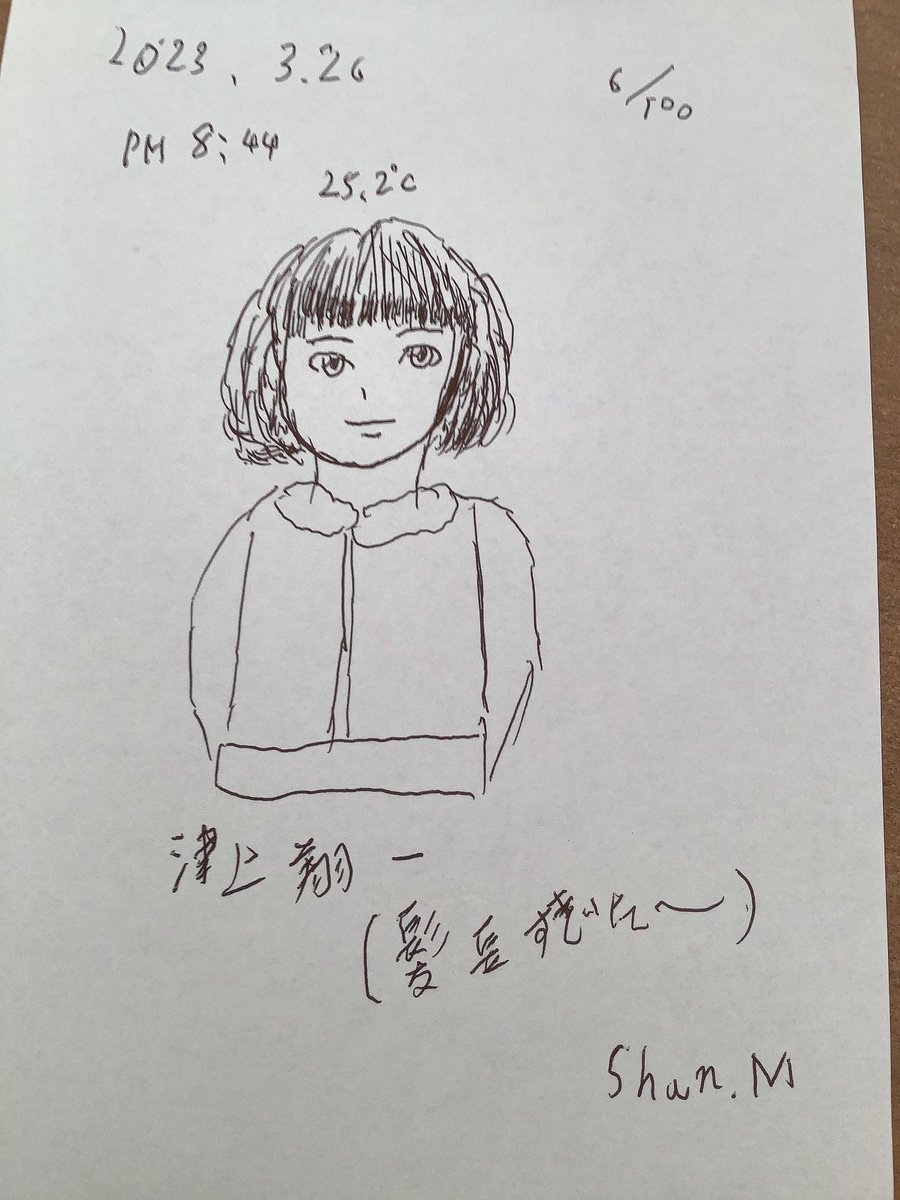 2023. 3.26
6/100
PM 8:44
25.2°C
津上翔一
(髪長
Shan.M